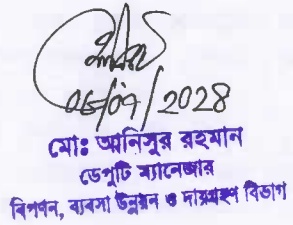 ০৮/০৭/2028
মোঃ আনিসুর রহমান
ডেপুটি ম্যানেজার
বিপণন, ব্যবসা উন্নয়ন ও দায়গ্রহণ বিভাগ